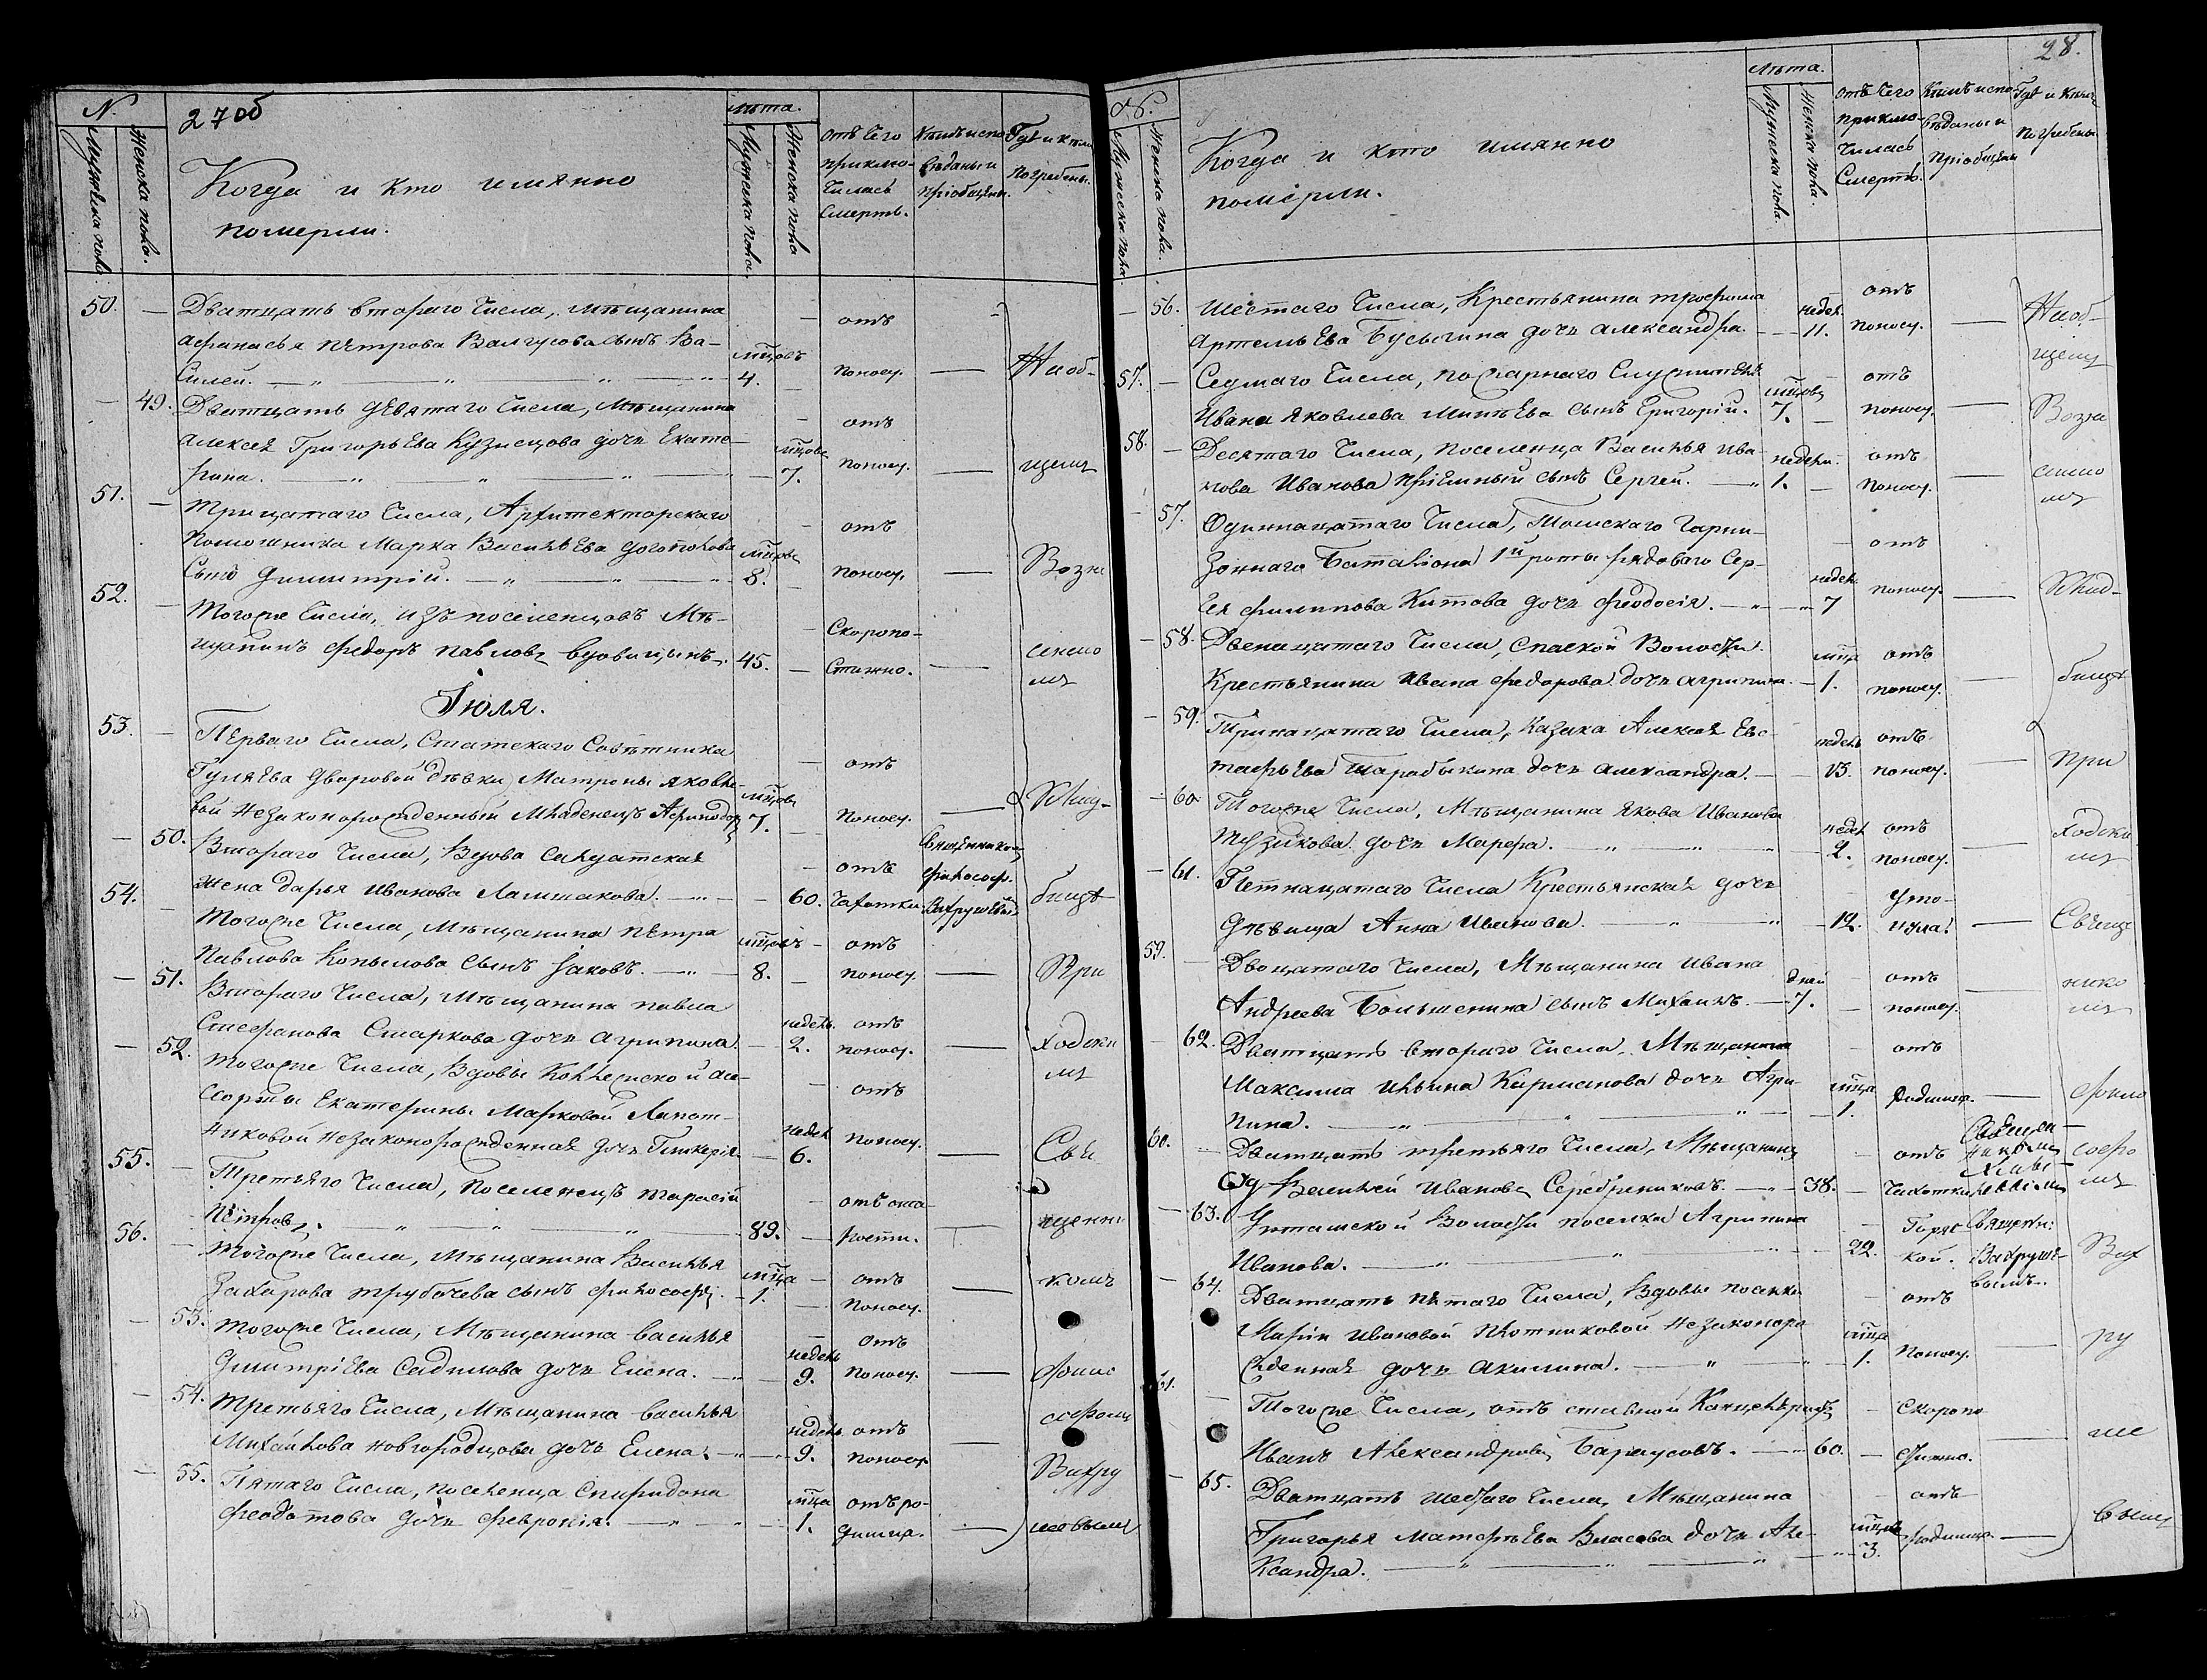 N.
27 об
Когда и кто имянно
померли.
лѣта.
Мужеска пола.
Женска пола.
Мужеска пола.
Женска пола
отъ чего
приклю-
чилась
смерть.
Кѣмъ испо-
вѣданы и
пріобщены.
Где и кѣмъ
погребены.
50. — Дватцать втораго числа, мѣщанина
Афанасья Петрова Валгусова сынъ Ва-
силей. мцовъ 4. — отъ поносу. — На об-
— 49. Дватцать девятаго числа, мѣщанина
Алексея Григорьева Кузнецова дочь Екате-
рина. мцовъ 7. отъ поносу. — щемъ
51. — Трицатаго числа, Архитекторскаго
помошника Марка Васильева
сынъ Димитрій. мцовъ 8. — отъ поносу. — Возне
52. — Тогоже числа, изъ поселенцовъ мѣ-
щанинъ Федоръ Павловъ Вдовицынъ. 45. — Скоропо-
стижно. — сенско
мъ
Іюля.
53. — Перваго числа, Статскаго Советника
Гуляева дворовой дѣвки Матроны Яковле-
вой незаконорожденный младенецъ Афинодоръ мцовъ 7. — отъ поносу. — клад-
— 50. Втораго числа, Вдова салдатская
жена Дарья Иванова Ламшакова. — 60. отъ чахотки Священникомъ Философ. Вахрушевымъ бище
54. — Тогоже числа, мѣщанина Петра
Павлова Копылова сынъ Іаковъ. мцовъ 8. — отъ поносу. — При
— 51. Втораго числа, мѣщанина Павла
Стефанова Старкова дочь Агрипина. — недель 2. отъ поносу. — ходски
мъ
— 52. Тогоже числа, Вдовы Коллежской ас-
сорши Екатерины Марковой Лапат-
никовой незаконорожденная дочь Гликерія. — недель 6. отъ поносу. — Свя
55. — Третьяго числа, поселенецъ Тарасій
Петровъ. 89. — отъ ста-
рости. — щенни
56. — Тогоже числа, мѣщанина Василья
Захарова Трубачева сынъ Философъ. мца 1. — отъ поносу. — комъ
— 53. Тогоже числа, мѣщанина Василья
Димитріева Садилова дочь Елена. — недель 9. отъ поносу. — Фило
— 54. Третьяго числа, мѣщанина Василья
Михайлова Новгородцова дочь Елена. — недель 9. отъ поносу — софомъ
— 55. Пятаго числа, поселенца Спиридона
Феодотова дочь Феврокія. — мца 1. отъ ро-
димца. — Вахру
шевымъ
28.
N.
Когда и кто имянно
померли.
лѣта.
Мужеска пола.
Женска пола.
Мужеска пола.
Женска пола.
отъ чего
приклю-
чилась
смерть.
Кѣмъ испо-
вѣданы и
пріобщены
Где и кѣмъ
погребены.
— 56. Шестаго числа, Крестьянина Трофима
Артемьева Бусыгина дочь Александра. — недел. 11. отъ поносу. — На об-
щемъ
57. — Седмаго числа, пожарнаго служителя
Ивана Яковлева Минѣева сынъ Григорій. мцовъ 7. — отъ поносу. — Возне
58. — Десятаго числа, поселенца Василья Ива-
нова Иванова пріемный сынъ Сергей. недели. 1. — отъ поносу. — сенско
мъ
— 57. Одиннацатаго числа, Томскаго Гарни-
зоннаго Баталіона 1й роты рядоваго Сер-
гея Филипова Китова дочь Феодосія. — недель 7 отъ поносу. — клад-
— 58. Двенацатаго числа, Спаской Волости
Крестьянина Ивана Федорова дочь Агрипина. — мца 1. отъ поносу. — бище
— 59. Тринацатаго числа, Казака Алексея Евс-
тафьева Шарабыкина дочь Александра. — недель 13. отъ поносу. — При
— 60. Тогоже числа, мѣщанина Якова Иванова
Музикова дочь Марфа. недел 2. отъ поносу. — ходски
мъ
— 61. Петнацатаго числа Крестьянская дочь
девица Анна Иванова. — 12. Уто-
нула. — Свяще
59. — Двацатаго числа, Мѣщанина Ивана
Андреева Большенина сынъ Михаилъ. — дней 7. — отъ поносу. — нико
мъ
— 62. Дватцать втораго числа, Мѣщанина
Максима Ильина Кирманова дочь Агри-
пина. — мца 1. отъ родимца. — Фило
60. — Дватцать третьяго числа, Мѣщанинъ
Василей Ивановъ Серебрениковъ. 38. — отъ чахотки Священ-
никомъ софо
мъ
— 63. Уртамской Волости поселка Агрипина
Иванова. 22. Горяч-
кой. Священни:
Вахруше-
вымъ. Вах
— 64. Дватцать пятаго числа, Вдовы поселки
Маріи Ивановой Плотниковой незаконоро
жденная дочь Акилина. мца 1. отъ поносу. — ру
61. — Тогоже числа, отъ ставной Канцеляристъ
Иванъ Александровъ Барнусовъ. 60. — Скоропо
стижно. — ше
— 65. Дватцать шестаго числа, Мѣщанина
Григорья Матфеева Власова дочь Але-
ксандра. мцовъ 3. отъ родимца. — вымъ